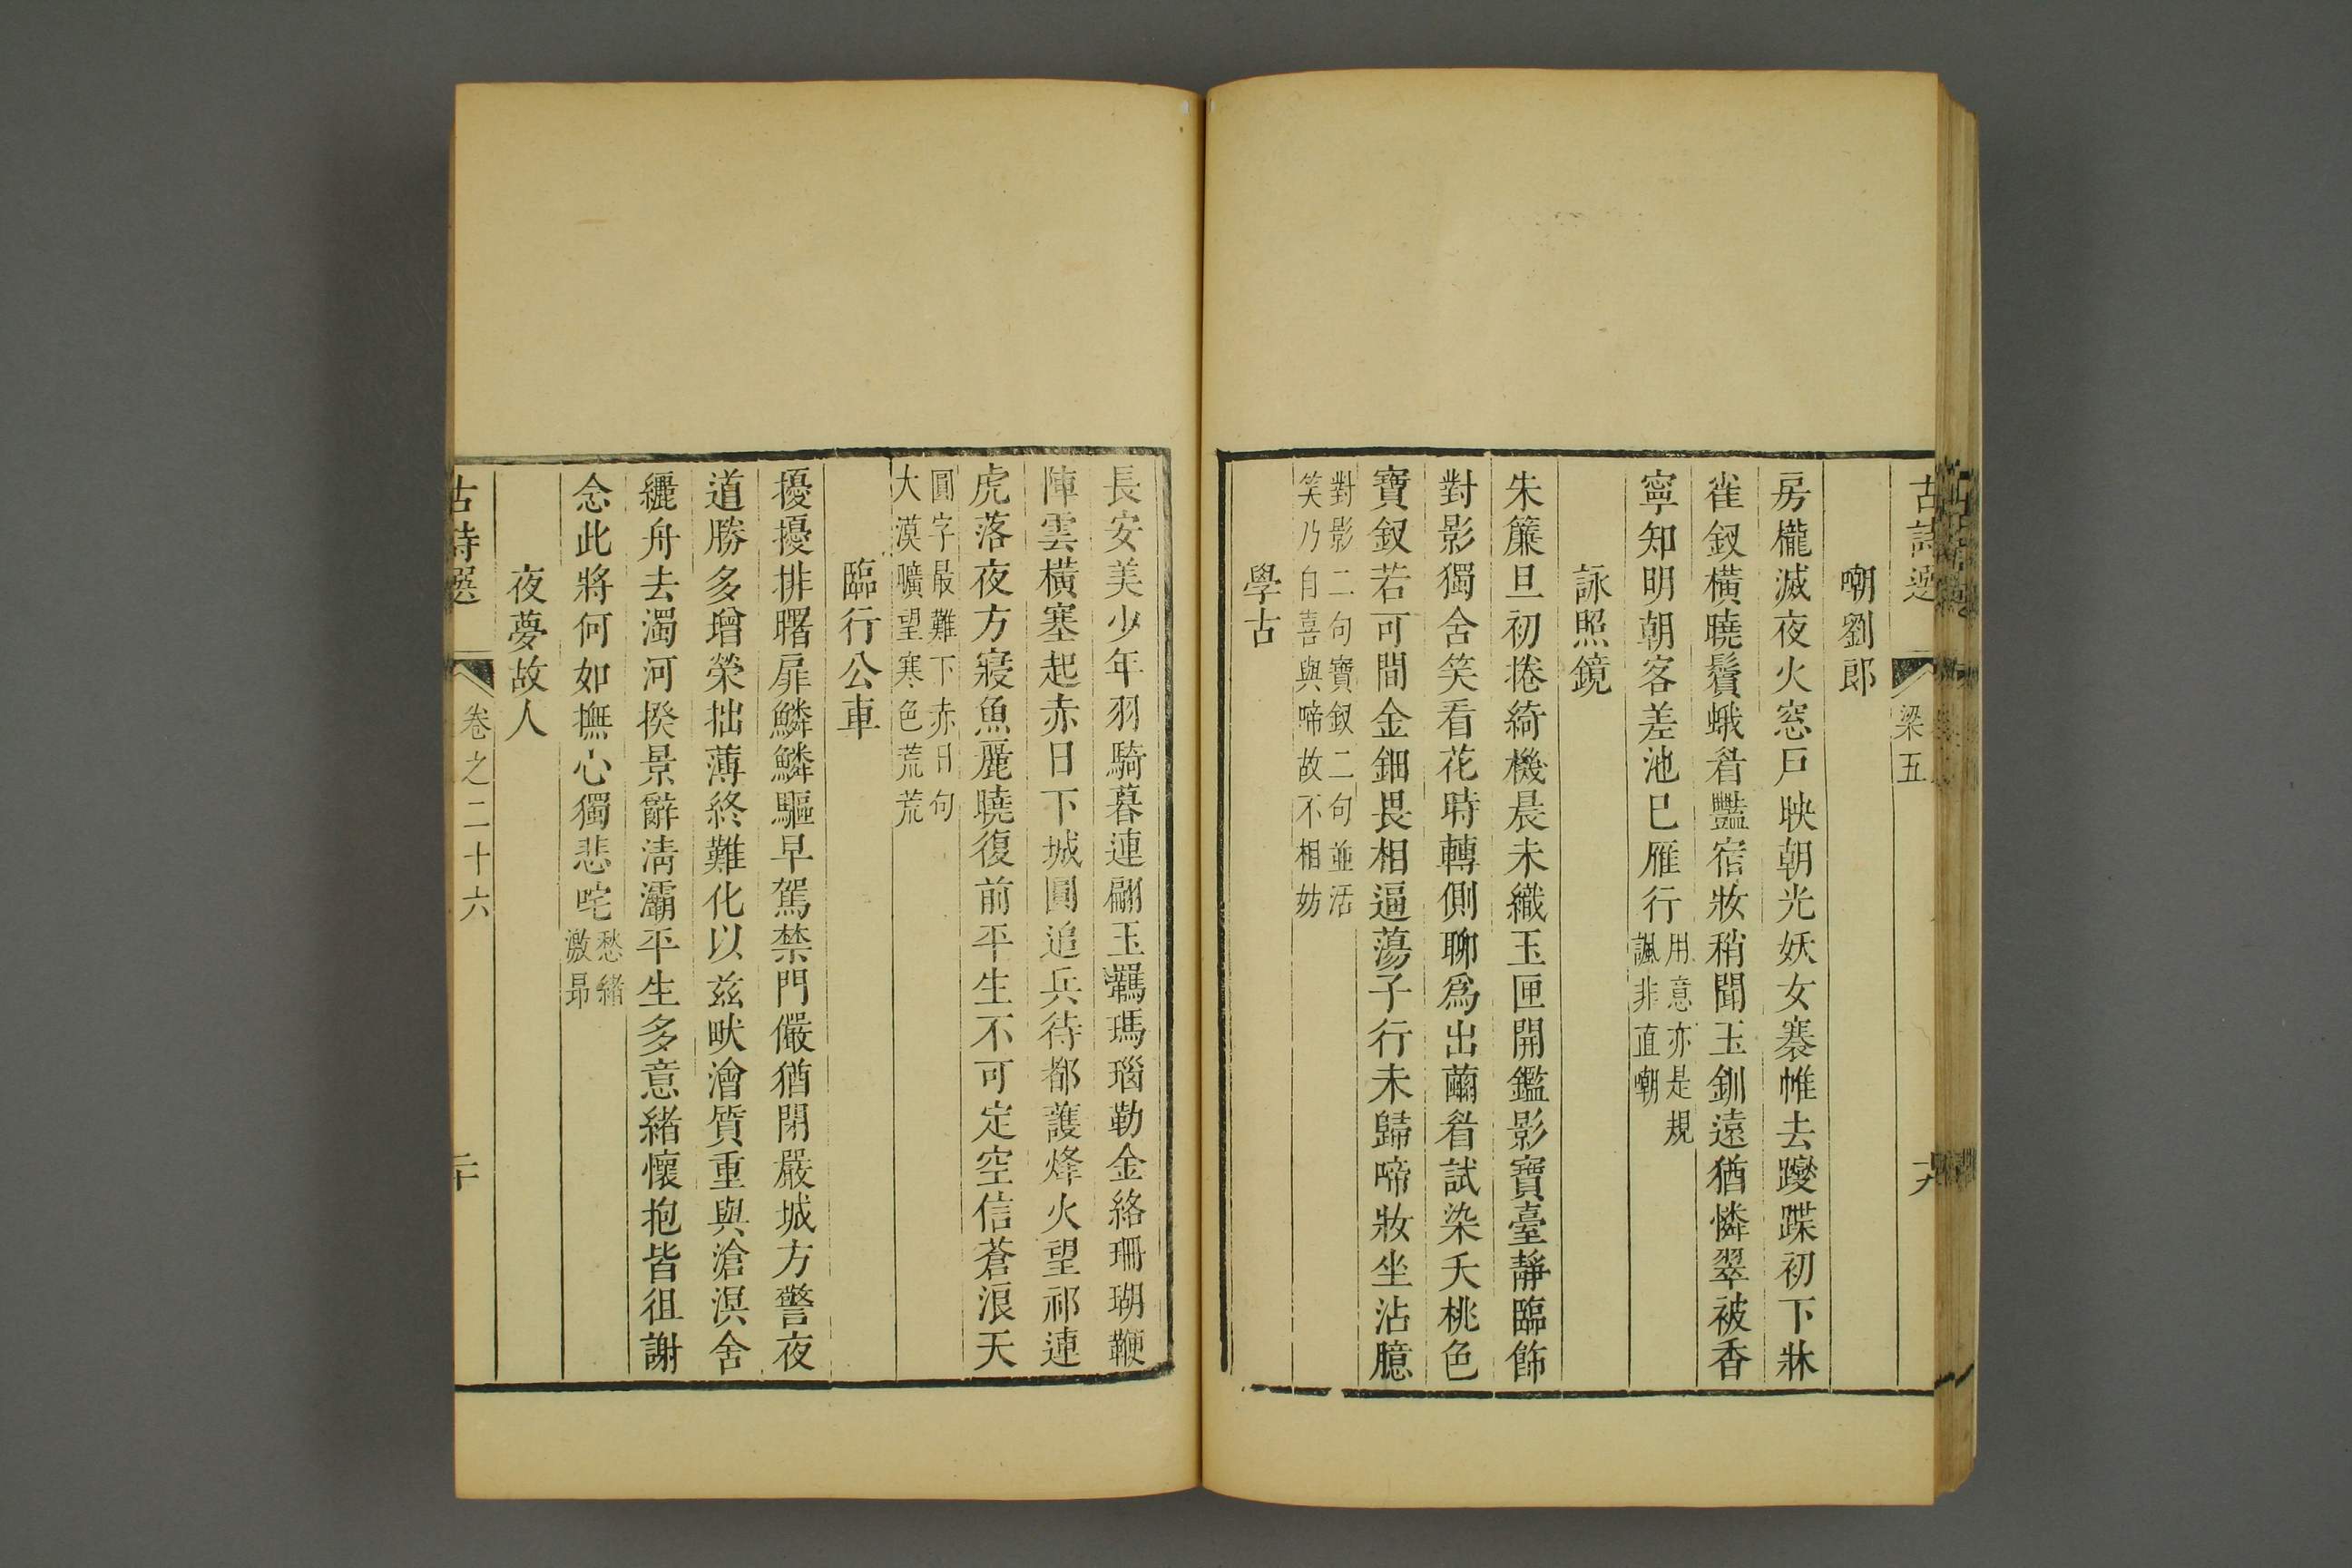 古詩選 梁五
嘲劉郎
房櫳滅夜火窓戸映朝光妖女褰帷去躞蹀初下牀
雀釵橫曉鬢蛾眉豔宿妝稍聞玉釧遠猶憐翠被香
寧知明朝客差池已雁行
用意亦是規
諷非直嘲
詠照鏡
朱簾旦初捲綺機晨未織玉匣開鑑影寶臺靜臨飾
對影獨含笑看花時轉側聊爲出繭眉試染夭桃色
寶釵若可間金鈿畏相逼蕩子行未歸啼妝坐沾臆
對影二句寶釵二句並活
笑乃自喜與啼故不相妨
學古
長安美少年羽騎暮連翩玉羈瑪瑙勒金絡珊瑚鞭
陣雲橫塞起赤日下城圓追兵待都護烽火望祁連
虎落夜方寢魚麗曉復前平生不可定空信蒼浪天
圓字最難下赤日句
大漠曠望寒色荒荒
臨行公車
擾擾排曙扉鱗鱗驅早駕禁門儼猶閉嚴城方警夜
道勝多增榮拙薄終難化以兹畎澮質重與滄溟舍
纚舟去濁河揆景辭淸灞平生多意緒懷抱皆徂謝
念此將何如撫心獨悲咤
愁緒
激昻
夜夢故人
古詩選 卷之二十六 二十